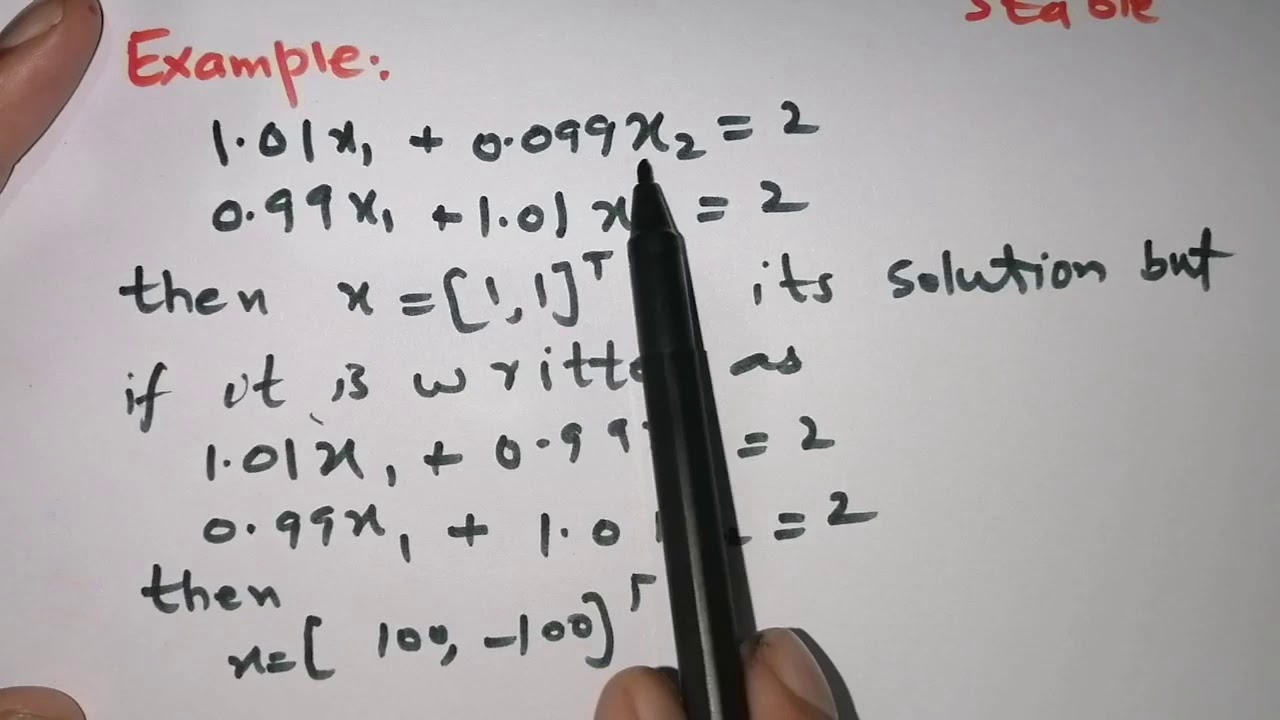 stable
Example:
1.01x₁ + 0.099x₂ = 2
0.99x₁ + 1.01x = 2
then x = [1,1]ᵀ its solution but
if it is writte as
1.01x₁ + 0.99 = 2
0.99x₁ + 1.0 = 2
then
x = [ 100, -100]ᵀ